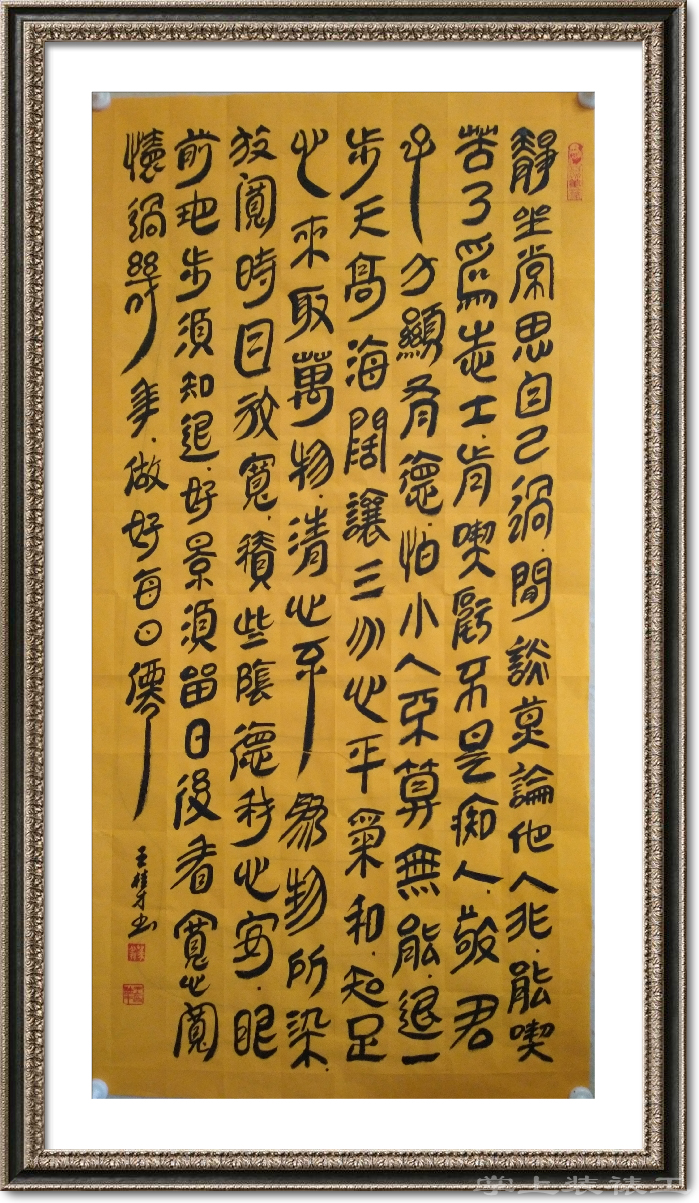 靜坐常思自己過.閒談莫論他人非.能喫
苦了為志士.肯喫虧不是痴人.敬君
子方顯有德.怕小人不算無能.退一
步天高海闊讓三分心平氣和.知足
心來取萬物.清心不為物所染.
放闊時目放寬.積些陰德我心安.眼
前地步須知退.好景須留日後看寬心闊
懷過幾年.做好每日僊
王才书
掌上装裱王